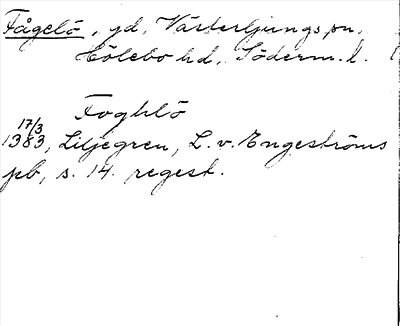 Fågelö, gd, Västerljungs sn,
Hölebo hd, Söderm. l.
Foghlö
17/3
1383, Liljegren, L. v. Engeströms
pb, s. 14. regest.